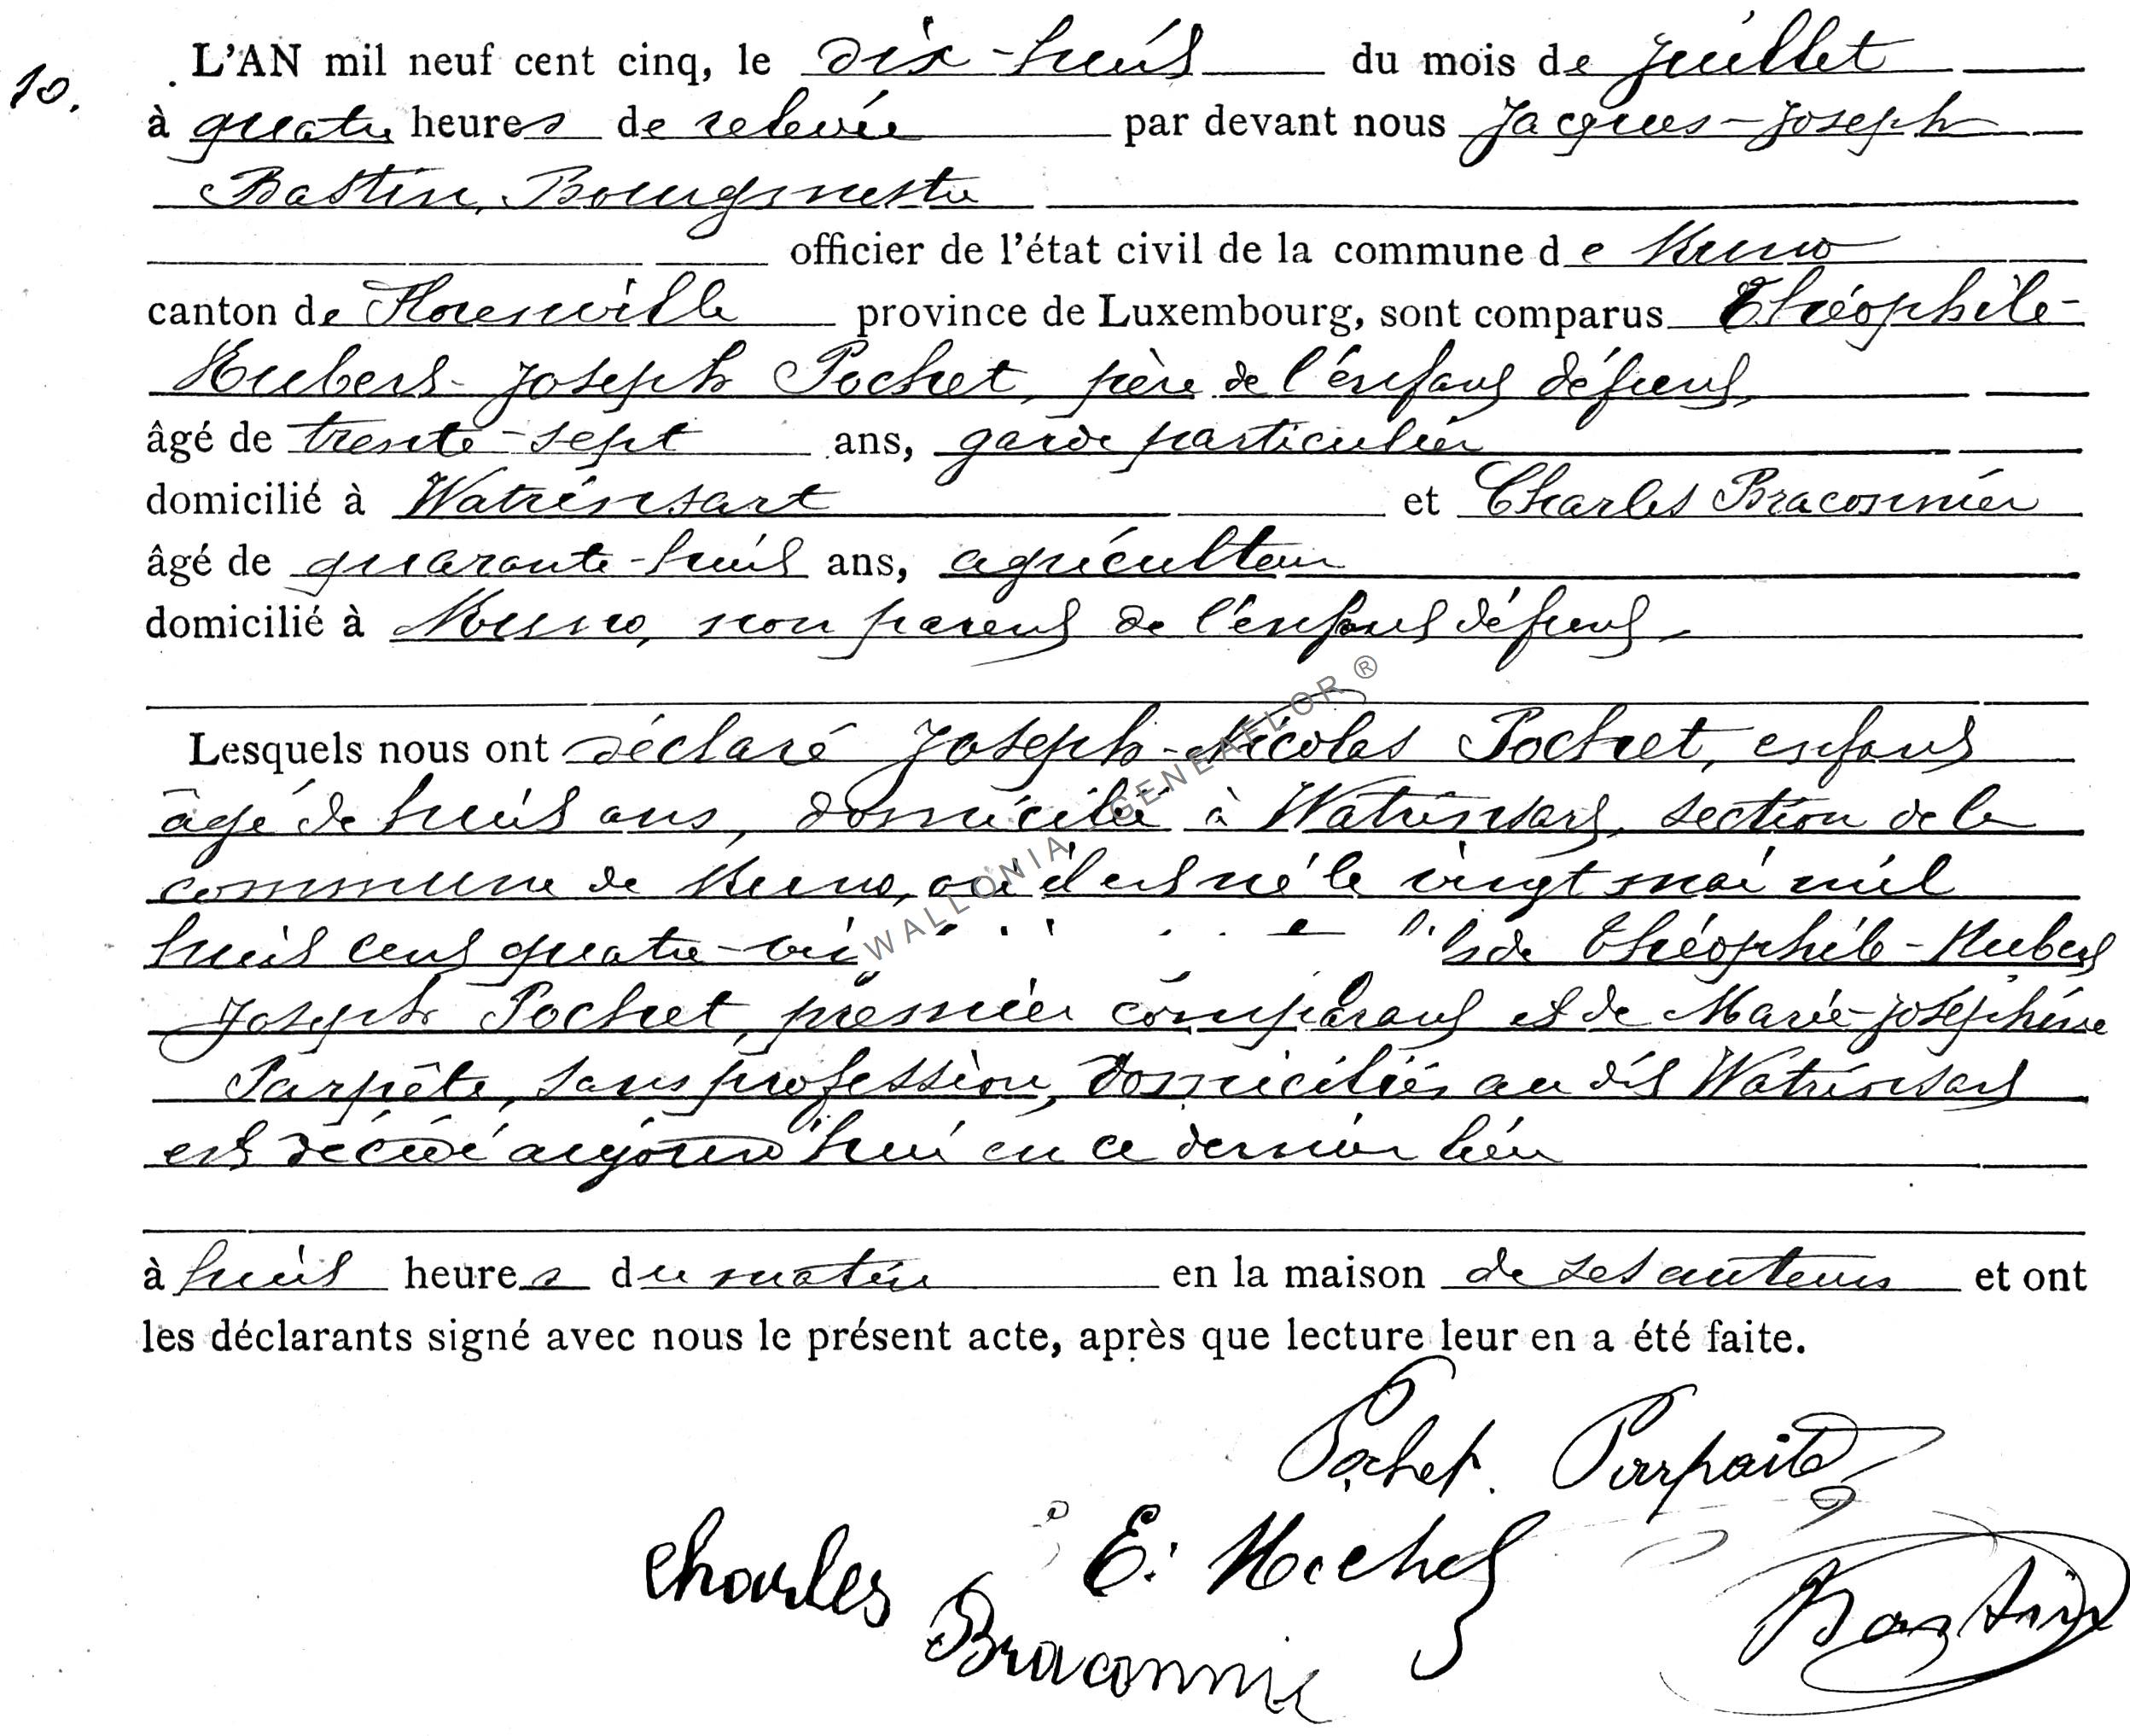 10.
L'AN mil neuf cent cinq, le dix-huit du mois de juillet
à quatre heures de relevée par devant nous Jacques-Joseph
Bastin, Bourgmestre
officier de l'état civil de la commune de Muno
canton de Florenville province de Luxembourg, sont comparus Théophile-
Hubert-Joseph Pochet, père de l'enfant défunt,
âgé de trente-sept ans, garde particulier
domicilié à Watrinsart et Charles Braconnier
âgé de quarante-huit ans, agriculteur
domicilié à Muno, non parent de l'enfant défunt,
Lesquels nous ont déclaré Joseph-Nicolas Pochet, enfant
âgé de huit ans, domicilié à Watrinsart, section de la
commune de Muno, où il est né le vingt mai mil
huit cent quatre-vi fils de Théophile-Hubert
Joseph Pochet, premier comparant et de Marie-Joséphine
Parpète, sans profession, domiciliés au dit Watrinsart
est décédé aujourd'hui en ce dernier lieu
à huit heures du matin en la maison de ses auteurs et ont
les déclarants signé avec nous le présent acte, après que lecture leur en a été faite.
Pochet. Parfait
E. Michel
Charles Braconnie
Bastin
WALLONIA GENEAFLOR ®